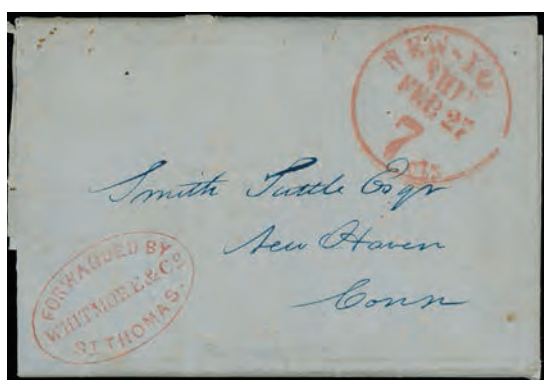 NEW-YO
SHIP
FEB 27
7
cts
Smith Tuttle Esqr
New Haven
Conn
FORWARDED BY
WHITMORE & Co
ST THOMAS.